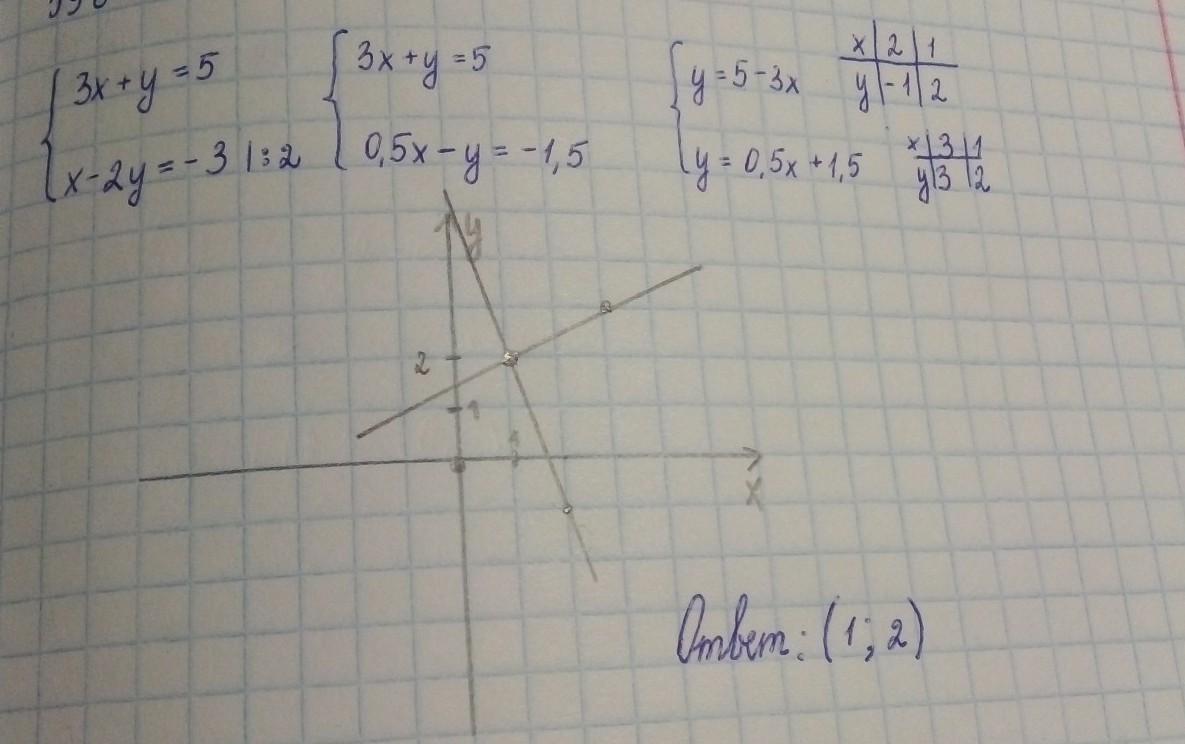 3x + y = 5
x - 2y = - 3 | : 2
3x + y = 5
0,5x - y = - 1,5
y = 5 - 3x
y = 0,5x + 1,5
x | 2 | 1
y | -1 | 2
x | 3 | 1
y | 3 | 2
y
2
1
1
x
Ответ: (1; 2)